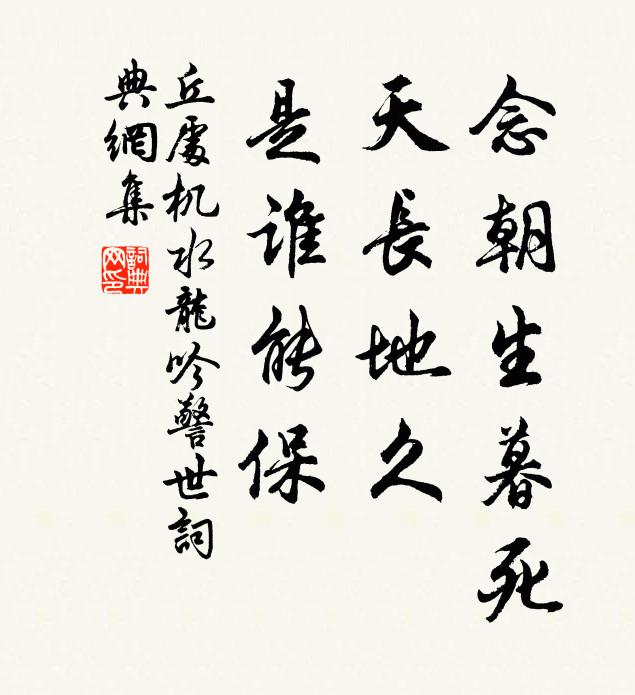 念朝生暮死
天長地久
是誰能保
丘處机水龍吟警世詞
典網集
詞典網印